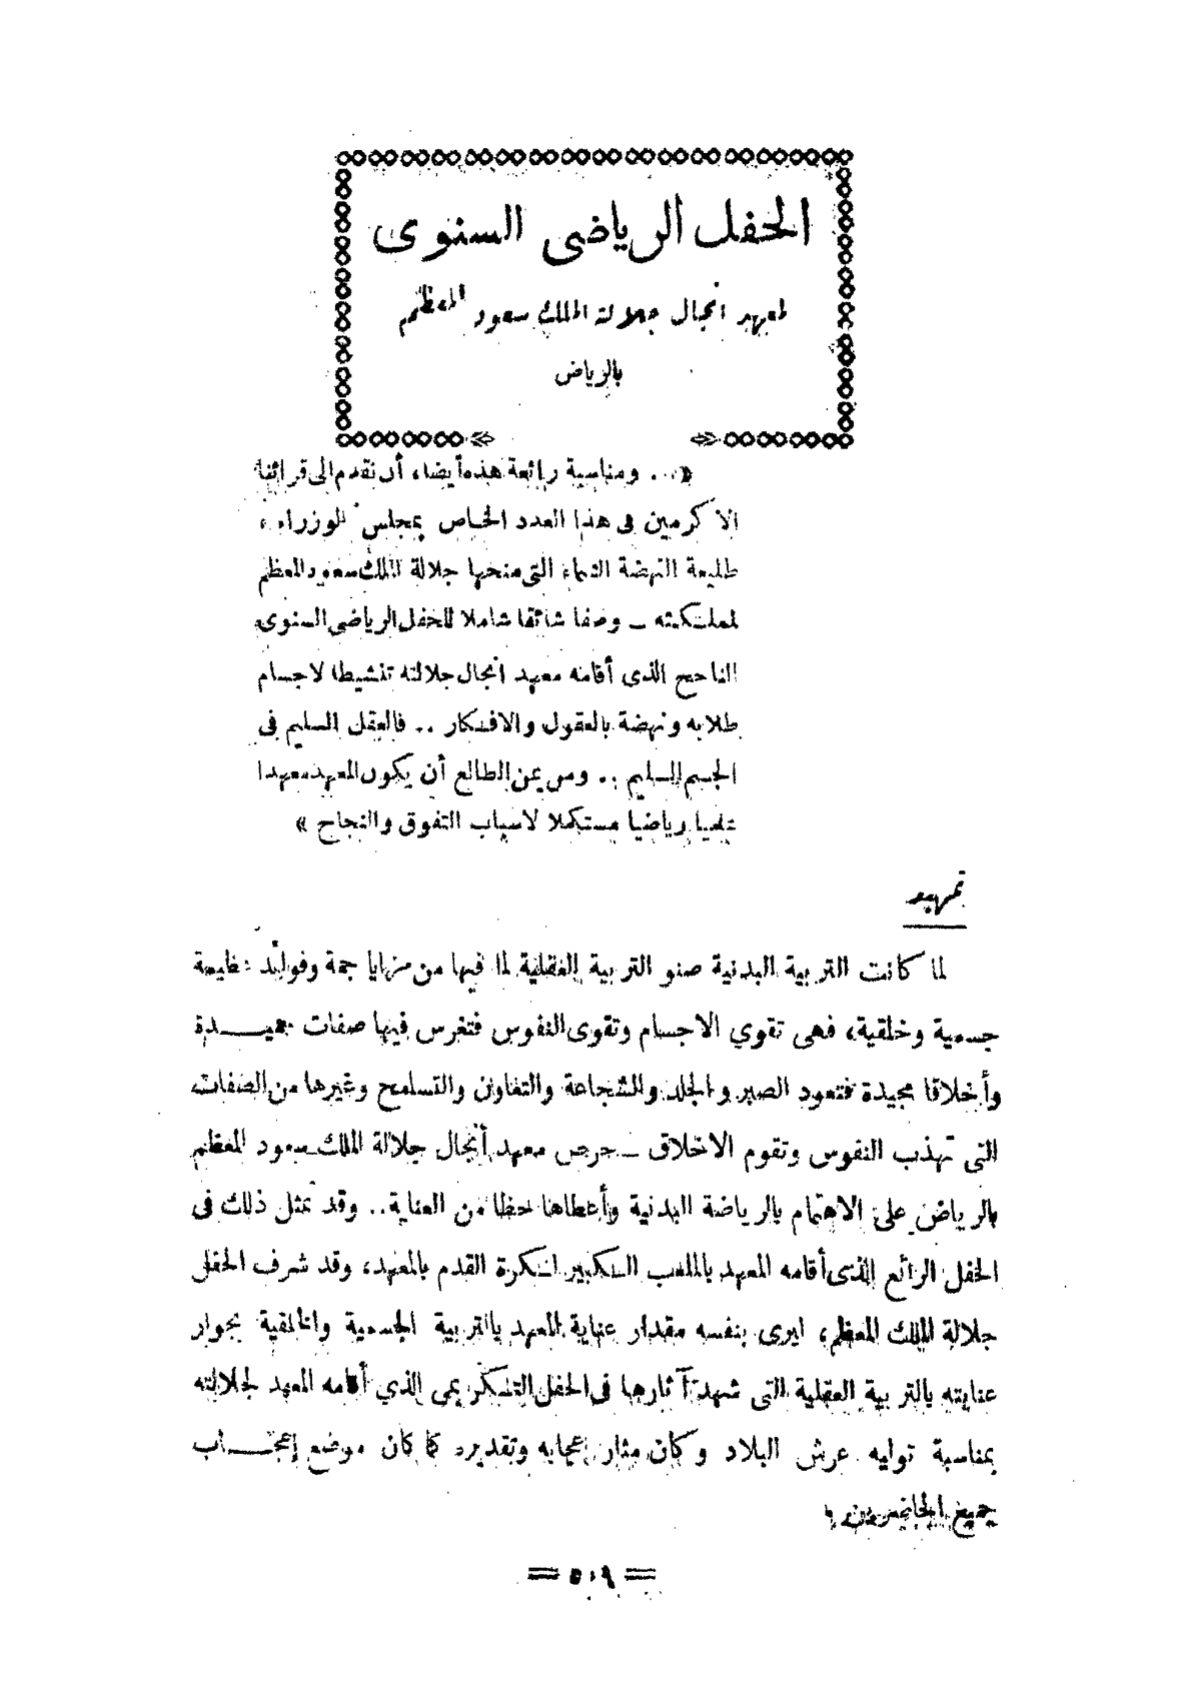 الحفل الرياضى السنوى
لمعهد انجال جلالة الملك سعود المعظم
بالرياض
«... ومناسبة رائعة هذه أيضا، أن نقدم الى قرائنا
الاكرمين فى هذا العدد الخاص بمجلس الوزراء ،
طليعة النهضة الشماء التى منحها جلالة الملك سعود المعظم
لمملكته – وصفا شائقا شاملا للحفل الرياضى السنوى
الناجح الذى أقامه معهد انجال جلالته تنشيطا لاجسام
طلابه ونهضة بالعقول والافكار .. فالعقل السليم فى
الجسم السليم .. ومن يمن الطالع أن يكون المعهد معهدا
علميا رياضيا مستكملا لاسباب التفوق والنجاح »
تمهيد
لما كانت التربية البدنية صنو التربية العقلية لما فيها من مزايا جمة وفوائد عظيمة
جسمية وخلقية، فهى تقوي الاجسام وتقوى النفوس فتغرس فيها صفات حميـــدة
وأخلاقا مجيدة فتعود الصبر والجلد والشجاعة والتعاون والتسامح وغيرها من الصفات
التى تهذب النفوس وتقوم الاخلاق – حرص معهد أنجال جلالة الملك سعود المعظم
بالرياض على الاهتمام بالرياضة البدنية وأعطاها حظا من العناية.. وقد تمثل ذلك فى
الحفل الرائع الذى أقامه المعهد بالملعب الكبير لكرة القدم بالمعهد، وقد شرف الحفل
جلالة الملك المعظم، ليرى بنفسه مقدار عناية المعهد بالتربية الجسمية والخلقية بجوار
عنايته بالتربية العقلية التى شهد آثارها فى الحفل التكريمى الذي أقامه المعهد لجلالته
بمناسبة توليه عرش البلاد وكان مثار إعجابه وتقديره كما كان موضع إعجـــاب
جميع الحاضرين.
= ٥٠٩ =